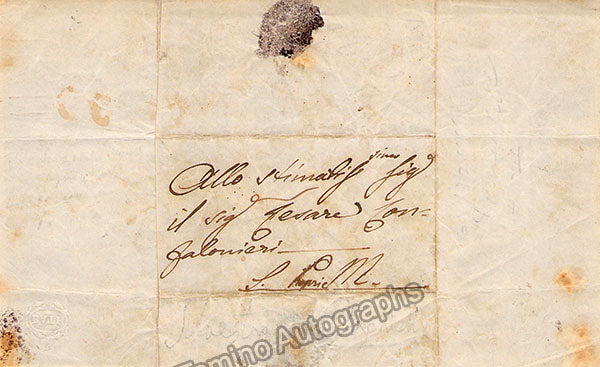 Allo stimatissimo Sig.
il sig. Cesare Con-
falonieri
S. P. M.
Tamino Autographs